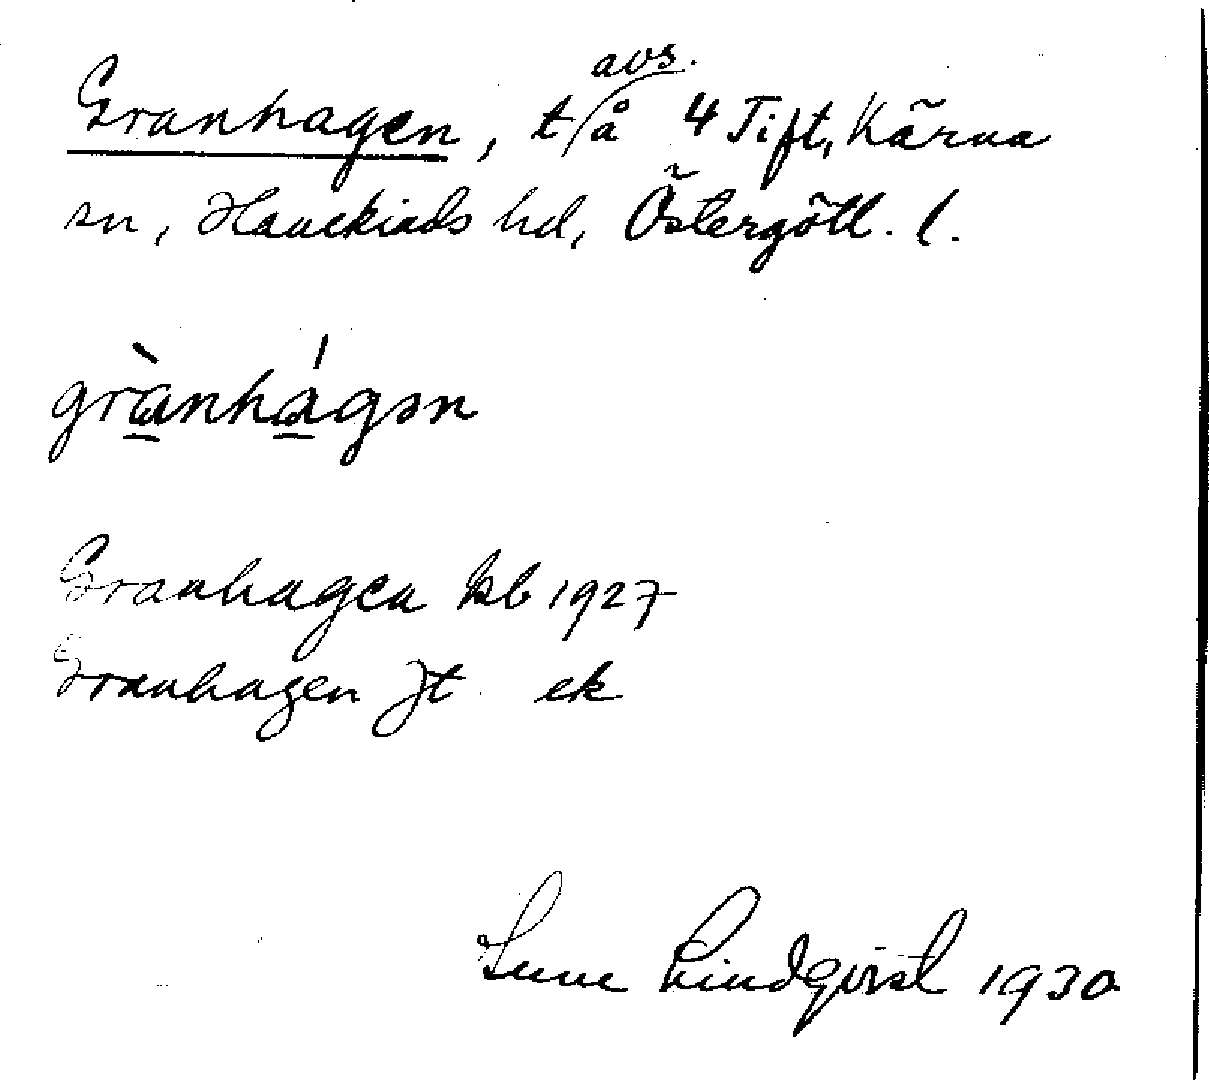 Granhagen, t/å avs. 4 Tift, Kärna
sn, Hanekinds hd, Östergötl. l.
grànhágən
Granhagen kb 1927
Granhagen Jt ek
Sune Lindqvist 1930